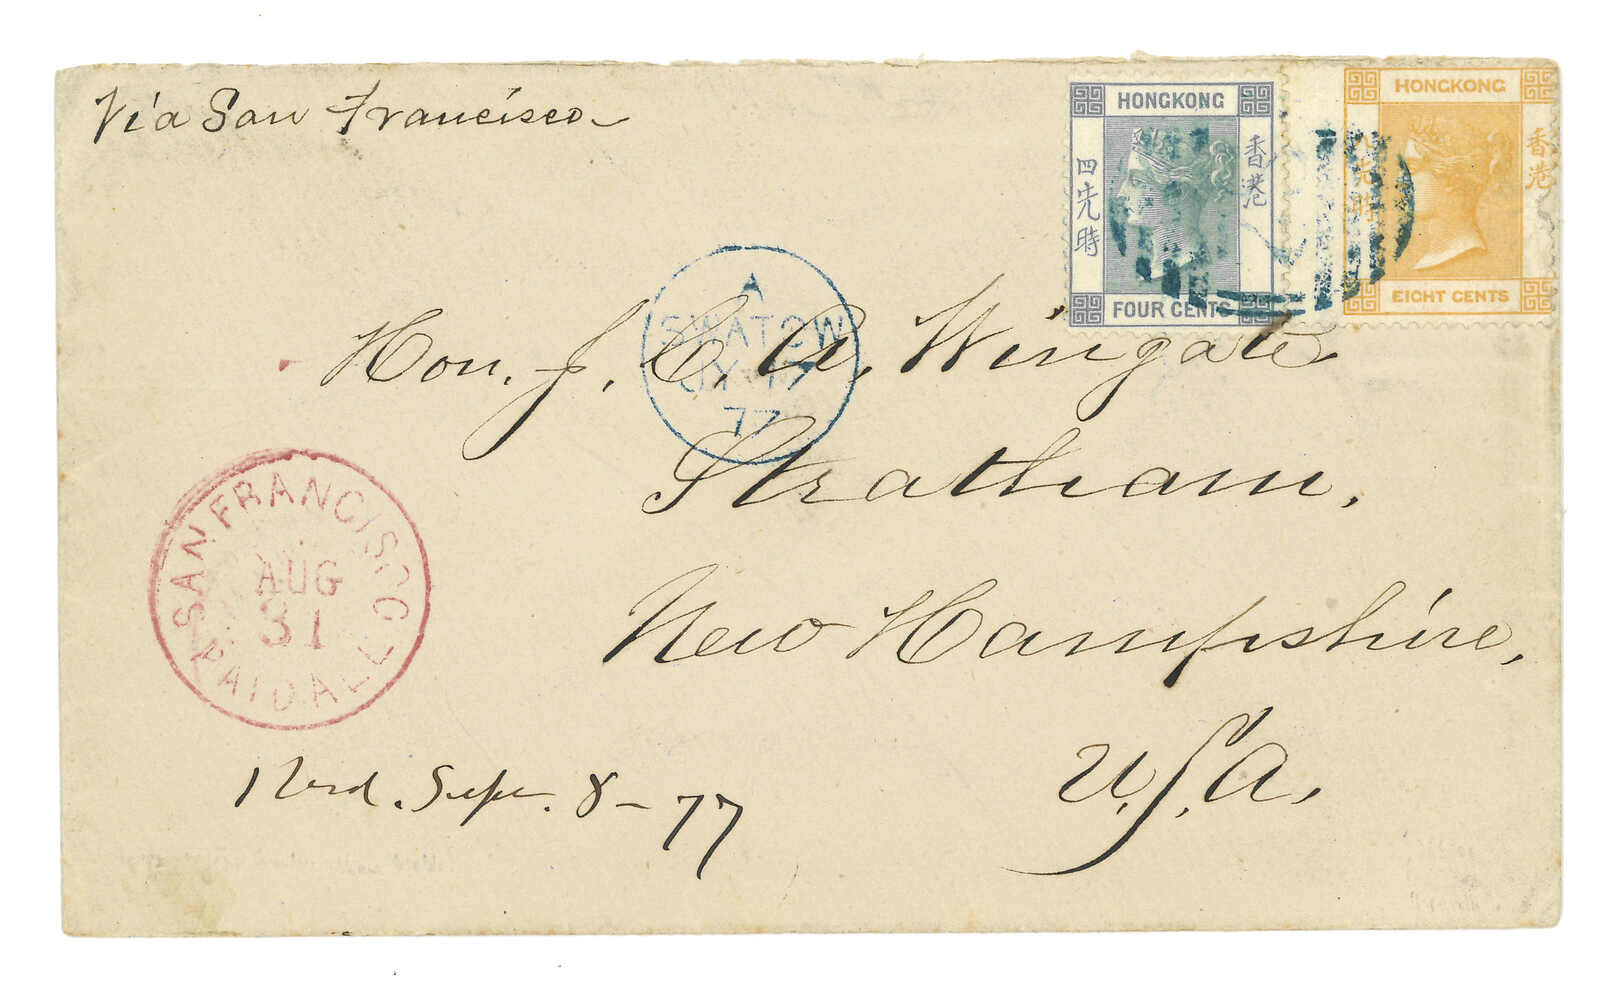 Via San Francisco
HONGKONG
四先時
香港
FOUR CENTS
HONGKONG
八先時
香港
EIGHT CENTS
A
SWATOW
JY 17
77
Hon. J. C. A. Wingate
Stratham,
New Hampshire,
U.S.A.
SAN FRANCISCO
AUG
31
PAID ALL
Recd. Sept. 8-77